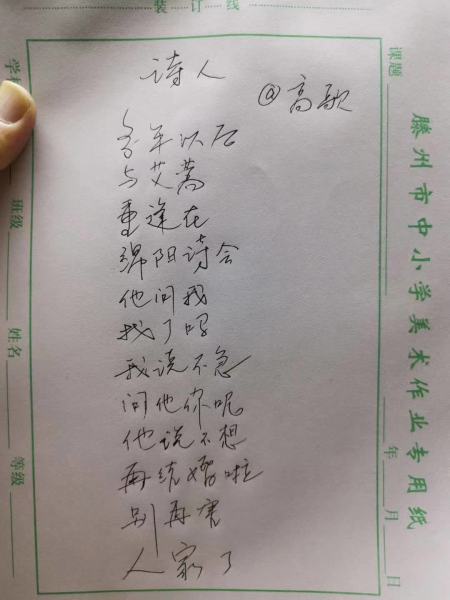 装订线
滕州市中小学美术作业专用纸
课题
年 月 日
班级
姓名
等级
诗人
@高歌
多年以后
与艾蒿
重逢在
绵阳诗会
他问我
找了吗
我说不急
问他你呢
他说不想
再结婚啦
别再害
人家了